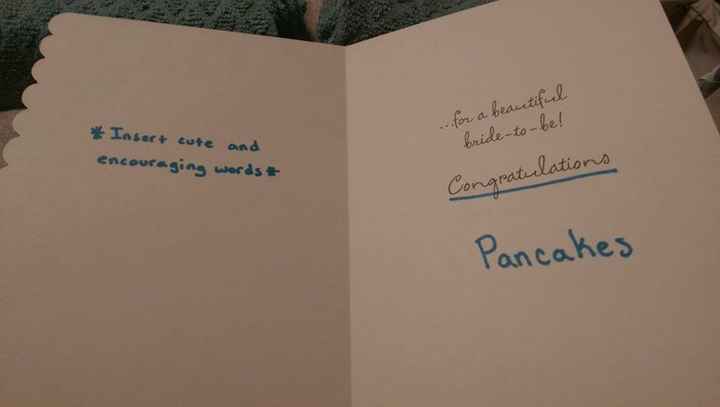 * Insert cute and
encouraging words *
...for a beautiful
bride-to-be!
Congratulations
Pancakes